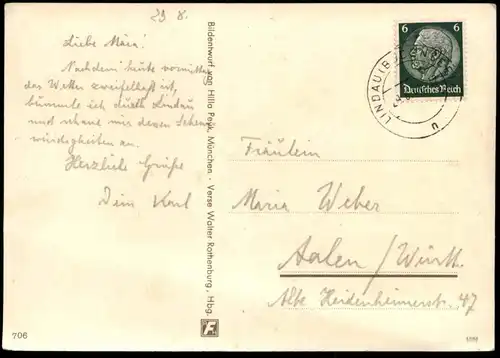 29 8.
Liebe Maria!
Nachdem heute vormittag
das Wetter zweifelhaft ist,
bummle ich durch Lindau
und schaue mir deren Sehens-
würdigkeiten an.
Herzliche Grüße
Dein Karl
706
Bildentwurf von Hilla Peyk, München · Verse Walter Rothenburg, Hbg.
F
6 6
Deutsches Reich
LINDAU (B
n
Fräulein
Maria Weber
Aalen / Württ.
Alte Heidenheimerstr. 47